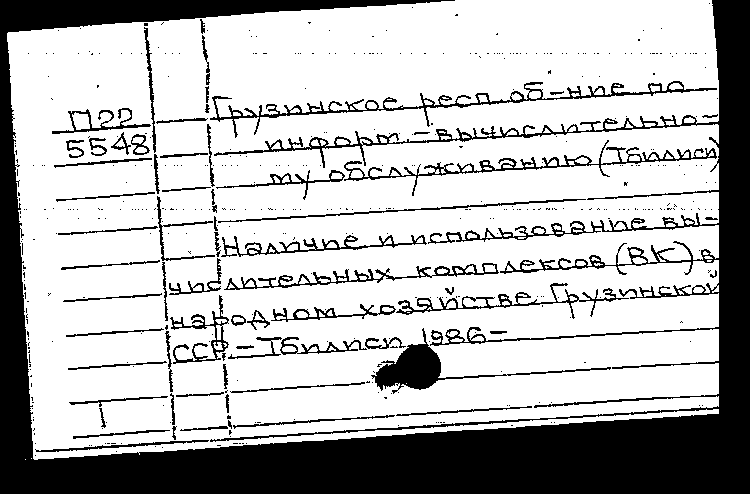 П22
5548
Грузинское респ. об-ние по
информ.-вычислительно-
му обслуживанию (Тбилиси)
Наличие и использование вы-
числительных комплексов (ВК) в
народном хозяйстве Грузинской
ССР.- Тбилиси, 1986-
1